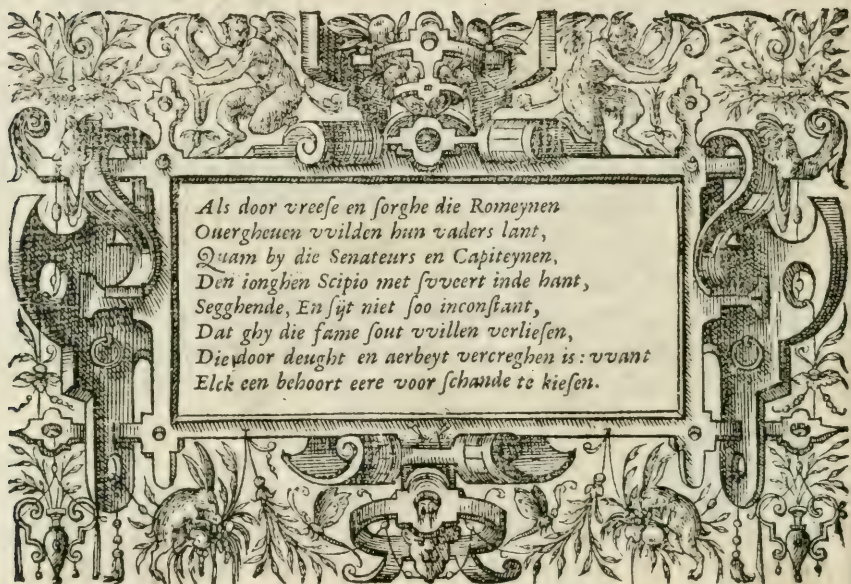 Als door vreese en sorghe die Romeynen
Ouergheuen vvilden hun vaders lant,
Quam by die Senateurs en Capiteynen,
Den ionghen Scipio met svveert inde hant,
Segghende, En sijt niet soo inconstant,
Dat ghy die fame sout vvillen verliesen,
Die door deught en aerbeyt vercreghen is: vvant
Elck een behoort eere voor schande te kiesen.